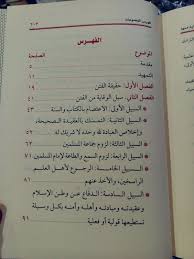 ٢٠٣
فهرس الموضوعات
الفهرس
الموضوع
الصفحة
مقدمة
٥
التمهيد
١١
الفصل الأول: حقيقة الفتن
١٩
الفصل الثاني: سبل الوقاية من الفتن
٥١
السبيل الأولى: الاعتصام بالكتاب والسنة
٥٣
السبيل الثانية: التمسك بالعقيدة الصحيحة،
وإخلاص العبادة لله وحده لا شريك له
السبيل الثالثة: لزوم جماعة المسلمين
السبيل الرابعة: لزوم السمع والطاعة لإمام المسلمين
السبيل الخامسة: الرجوع لأهل العلم
الراسخين، والأخذ عنهم
السبيل السادسة: الدفاع عن وطن الإسلام
وعقيدته ومبادئه وأهله وأمنه بكل وسيلة
نستطيعها قولية أو فعلية
٩١